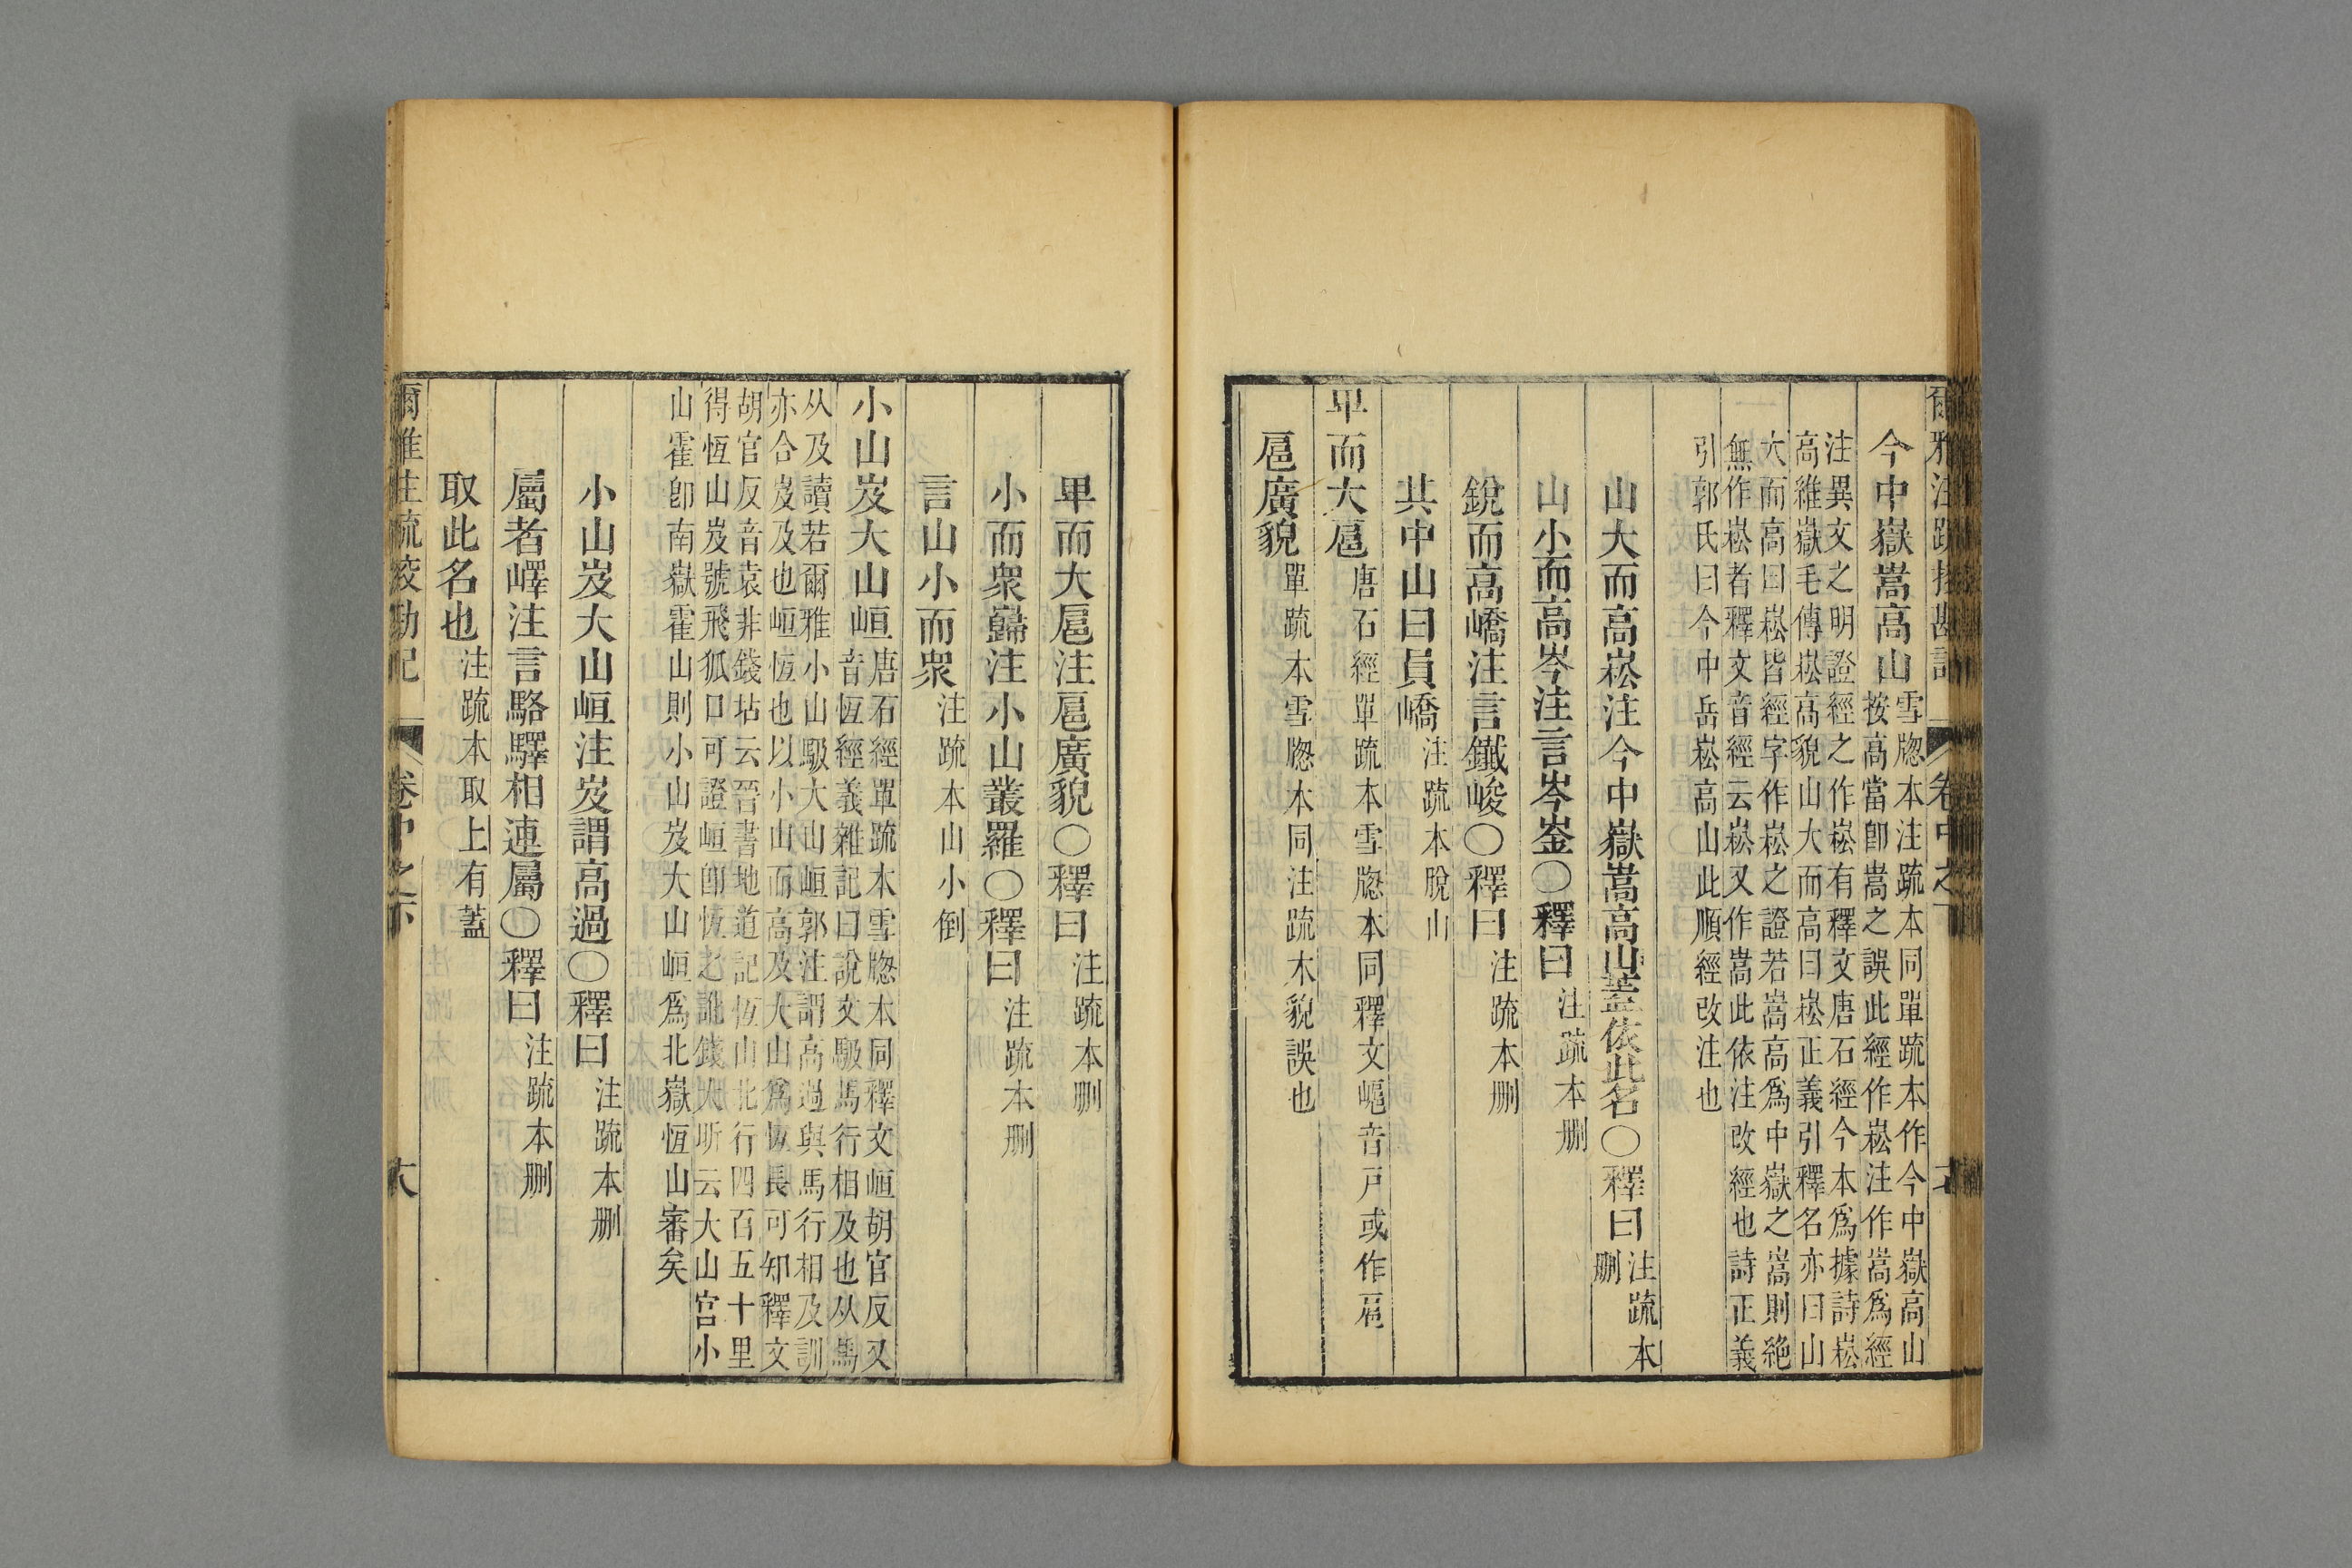 爾雅注疏挍勘記 卷中之下
今中嶽嵩高山 雪牕本注疏本同單疏本作今中嶽高山
按高當卽嵩之誤此經作崧注作嵩爲經
注異文之明證經之作崧有釋文唐石經今本爲據詩崧
高維嶽毛傳崧高貌山大而高曰崧正義引釋名亦曰山
大而高曰崧皆經字作崧之證若嵩高爲中嶽之嵩則絶
無作崧者釋文音經云崧又作嵩此依注改經也詩正義
引郭氏曰今中岳崧高山此順經改注也
山大而高崧注今中嶽嵩高山蓋依此名〇釋曰 注疏本
刪
山小而高岑注言岑崟〇釋曰 注疏本刪
銳而高嶠注言鑯峻〇釋曰 注疏本刪
共中山曰員嶠 注疏本脫山
卑而大扈 唐石經單疏本雪牕本同釋文嶇音戸或作扈
扈廣貌 單疏本雪牕本同注疏本貌誤也
卑而大扈注扈廣貌〇釋曰 注疏本刪
小而衆巋注小山叢羅〇釋曰 注疏本刪
言山小而衆 注疏本山小倒
小山岌大山峘 唐石經單疏本雪牕本同釋文峘胡官反又
音恆經義雜記曰說文馺馬行相及也从馬
从及讀若爾雅小山馺大山峘郭注謂高過與馬行相及訓
亦合岌及也峘恆也以小山而高及大山爲恆長可知釋文
胡官反音袁非錢坫云晉書地道記恆山北行四百五十里
得恆山岌號飛狐口可證峘卽恆之訛錢大昕云大山宫小
山霍卽南嶽霍山則小山岌大山峘爲北嶽恆山審矣
小山岌大山峘注岌謂高過〇釋曰 注疏本刪
屬者嶧注言駱驛相連屬〇釋曰 注疏本刪
取此名也 注疏本取上有蓋
爾雅注疏挍勘記 卷中之下 六